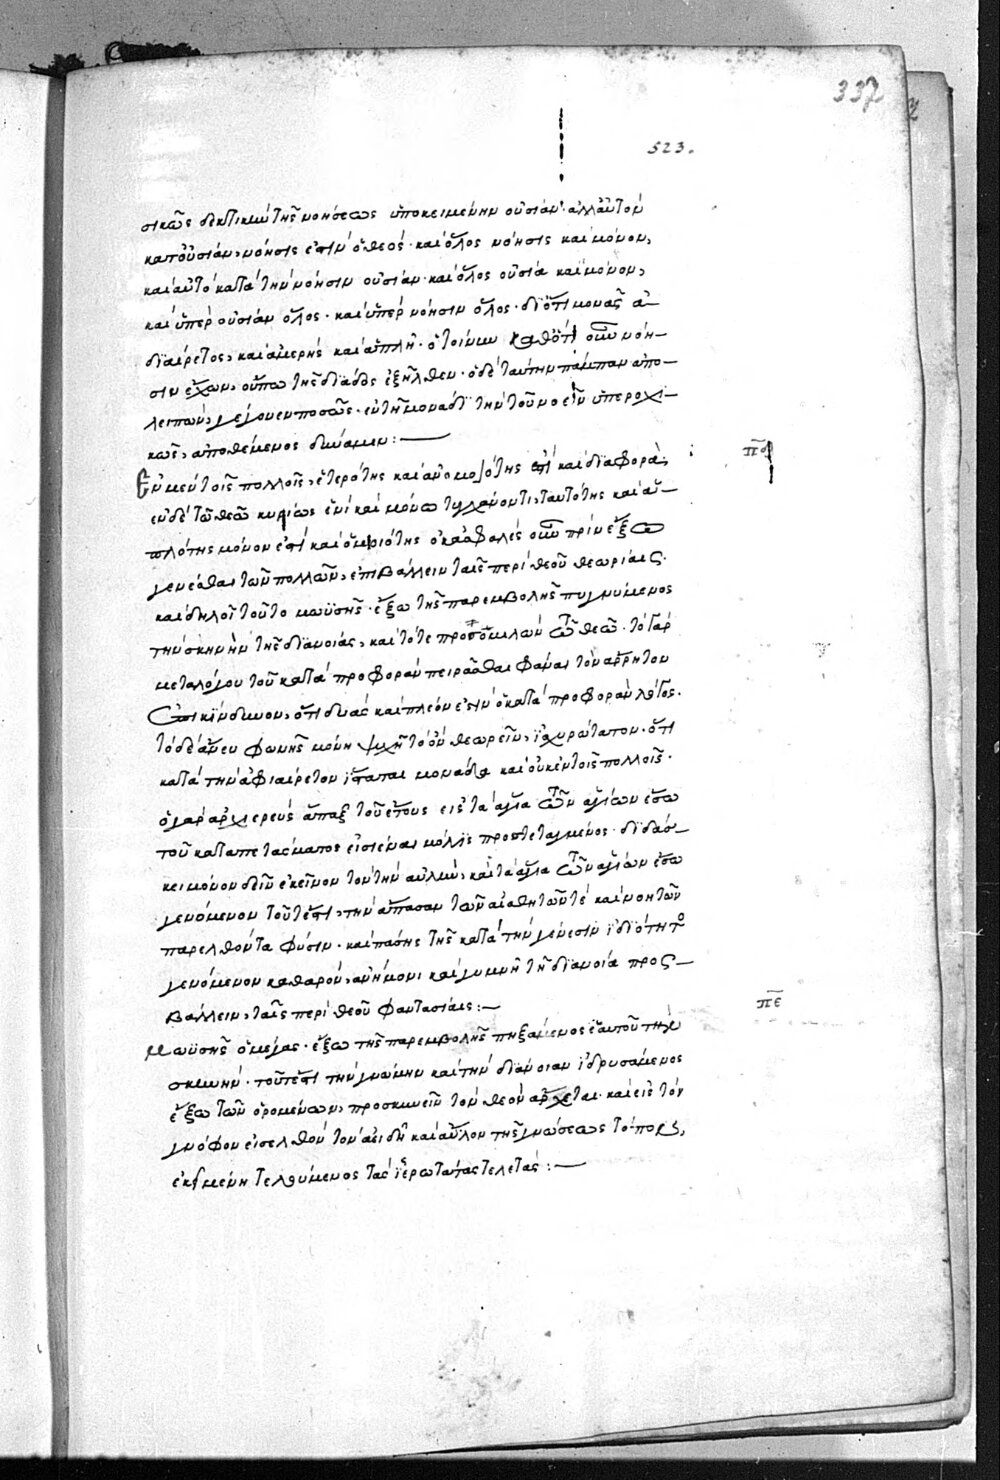 337
523.
σικῶς δεκτικὴν τῆς νοήσεως ὑποκειμένην οὐσίαν· ἀλλ' αὐτὸν
κατ' οὐσίαν, νόησις ἐστὶν ὁ θεός· καὶ ὅλος νόησις καὶ μόνον,
καὶ αὐτὸ κατὰ τὴν νόησιν οὐσίαν· καὶ ὅλος οὐσία καὶ μόνον,
καὶ ὑπὲρ οὐσίαν ὅλος· καὶ ὑπὲρ νόησιν ὅλος· διότι μονὰς ἀ-
διαίρετος, καὶ ἀμερὴς καὶ ἁπλῆ· ὁ τοίνυν καθότι οὖν νόη-
σιν ἔχων, οὔπω τῆς δυάδος ἐξῆλθεν· ὁ δὲ ταύτην πάμπαν ἀπο-
λειπὼν, γέγονεν ποσῶς· ἐν τῇ μονάδι τὴν τοῦ νοεῖν ὑπεροχι-
κῶς, ἀποθέμενος δύναμιν:—
Ἐν μὲν τοῖς πολλοῖς, ἑτερότης καὶ ἀνομοιότης ἐστὶ καὶ διαφορὰ·
πδ
ἐν δὲ τῶ θεῶ κυρίως ἑνὶ καὶ μόνω τυγχάνοντι, ταυτότης καὶ ἁ-
πλότης μόνον ἐστὶ καὶ ὁμοιότης οὐκ ἀσφαλὲς οὖν πρὶν ἔξω
γενέσθαι τῶν πολλῶν, ἐπιβάλλειν ταῖς περὶ θεοῦ θεωρίαις·
καὶ δηλοῖ τοῦτο μωϋσῆς· ἔξω τῆς παρεμβολῆς πηγνύμενος
τὴν σκηνὴν τῆς διανοίας, καὶ τότε προσομιλῶν τῶ θεῶ· τὸ γὰρ
μετὰ λόγου τοῦ κατὰ προφορὰν πειρᾶσθαι φάναι τὸν ἄρρητον
ἐπικίνδυνον, ὅτι δυὰς καὶ πλεόν ἐστιν ὁ κατὰ προφορὰν λόγος·
τὸ δὲ ἄνευ φωνῆς μόνη ψυχῇ τὸ ὂν θεωρεῖν, ἰσχυρότατον· ὅτι
κατὰ τὴν ἀδιαίρετον ἵσταται μονάδα καὶ οὐκ ἐν τοῖς πολλοῖς·
ὁ γὰρ ἀρχιερεὺς ἅπαξ τοῦ ἔτους εἰς τὰ ἅγια τῶν ἁγίων ἔσω
τοῦ καταπετάσματος εἰσιέναι μόλις προστεταγμένος· διδάσ-
κει μόνον δεῖν ἐκεῖνον τὸν τὴν αὐλὴν, καὶ τὰ ἅγια τῶν ἁγίων ἔσω
γενόμενον τοῦτέστι, τὴν ἅπασαν τῶν αἰσθητῶν τὲ καὶ νοητῶν
παρελθόντα φύσιν· καὶ πάσης τῆς κατὰ τὴν γένεσιν ἰδιότητος
γενόμενον καθαρὸν, ἀνείμονι καὶ γυμνῇ τῇ διανοία προς-
βάλλειν, ταῖς περὶ θεοῦ φαντασίαις:—
πε
Μωϋσῆς ὁ μέγας· ἔξω τῆς παρεμβολῆς πηξάμενος ἑαυτοῦ τὴν
σκηνὴν· τοῦτέστι τὴν γνώμην καὶ τὴν διάνοιαν ἱδρυσάμενος
ἔξω τῶν ὁρομένων, προσκυνεῖν τὸν θεὸν ἄρχεται· καὶ εἰς τὸν
γνόφον εἰσελθὸν τὸν ἀειδῆ καὶ ἄϋλον τῆς γνώσεως τόπον,
ἐκεῖ μένη τελούμενος τὰς ἱερωτάτας τελετάς:—